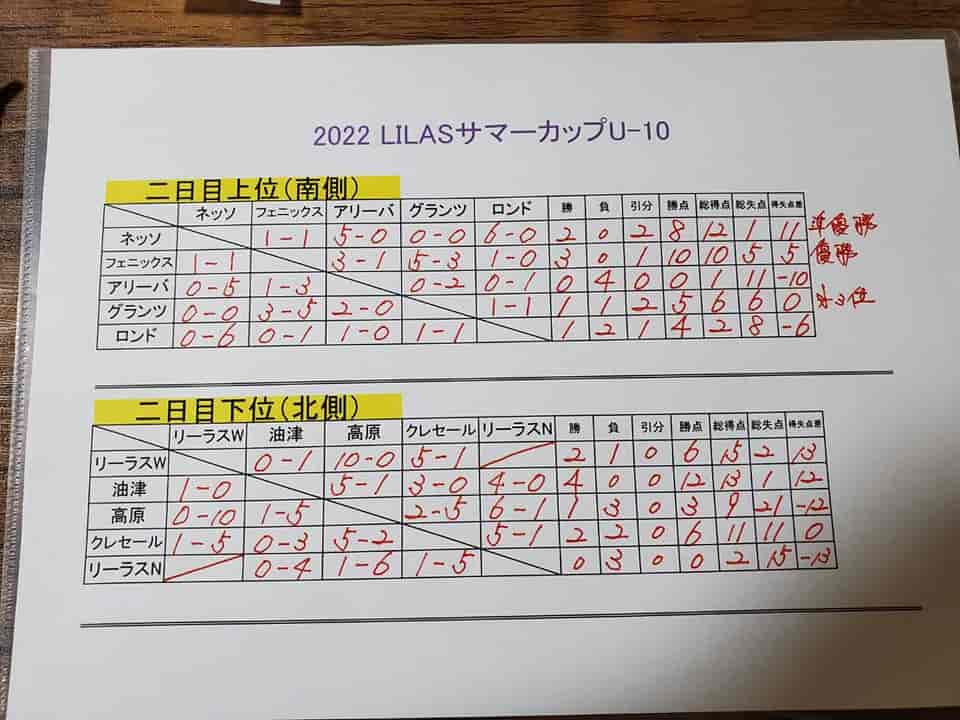 2022 LILASサマーカップU-10
二日目上位(南側)
ネッソ フェニックス アリーバ グランツ ロンド 勝 負 引分 勝点 総得点 総失点 得失点差
ネッソ 1-1 5-0 0-0 6-0 2 0 2 8 12 1 11 準優勝
フェニックス 1-1 3-1 5-3 1-0 3 0 1 10 10 5 5 優勝
アリーバ 0-5 1-3 0-2 0-1 0 4 0 0 1 11 -10
グランツ 0-0 3-5 2-0 1-1 1 1 2 5 6 6 0 3位
ロンド 0-6 0-1 1-0 1-1 1 2 1 4 2 8 -6
二日目下位(北側)
リーラスW 油津 高原 クレセール リーラスN 勝 負 引分 勝点 総得点 総失点 得失点差
リーラスW 0-1 10-0 5-1 2 1 0 6 15 2 13
油津 1-0 5-1 3-0 4-0 4 0 0 12 13 1 12
高原 0-10 1-5 2-5 6-1 1 3 0 3 9 21 -12
クレセール 1-5 0-3 5-2 5-1 2 2 0 6 11 11 0
リーラスN 0-4 1-6 1-5 0 3 0 0 2 15 -13